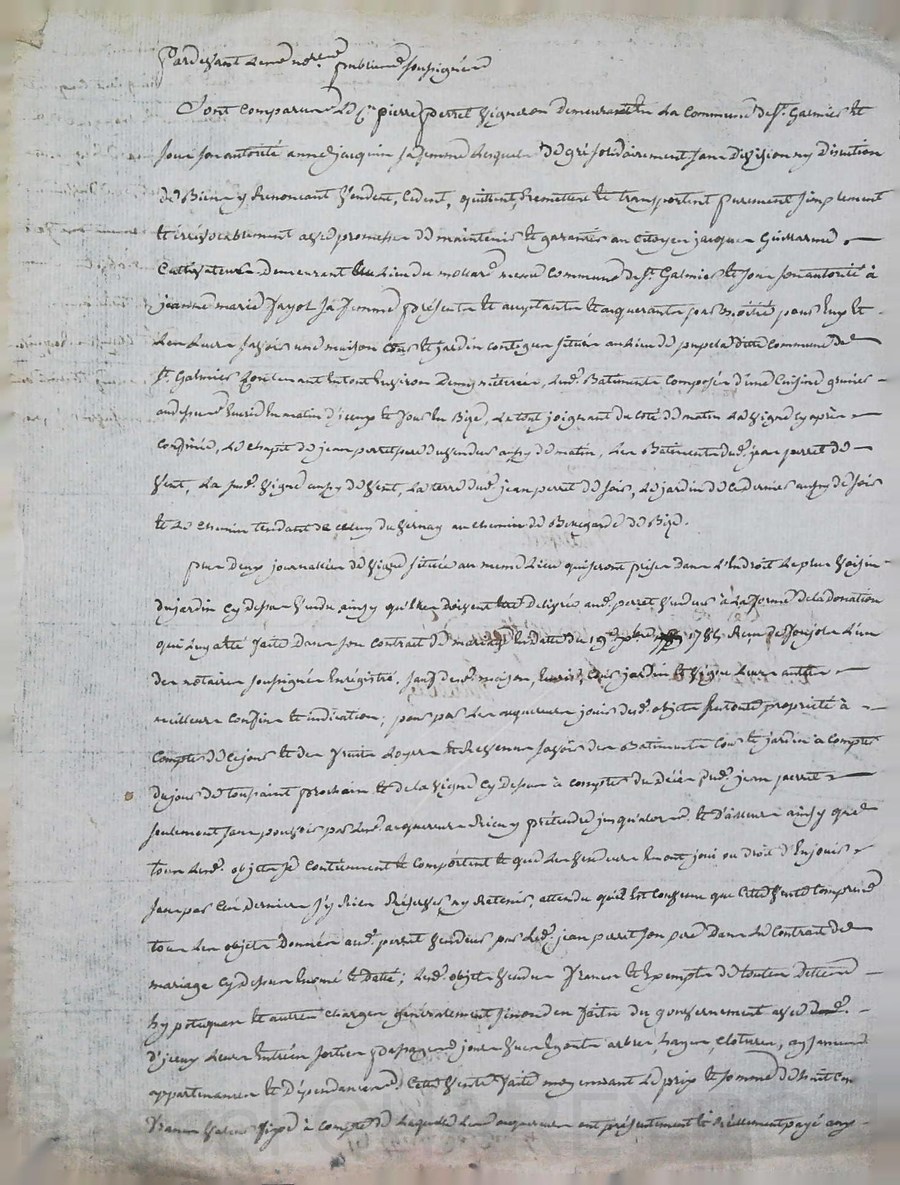 Pardevant Les nores publics soussignés
Sont comparus Le Cn pierre perret vigneron demeurant en La Commune de St Galmier et
sous son autorité anne jacquin sa femme Lesquels de gré solidairement sans division ny discution
de Biens y Renoncant vendent, cedent, quittent, Remettent et transportent purement simplement
et irrévocablement avec promesse de maintenir et garantir au Citoyen jacques Guillarme
Cultivateur demeurant au Lieu du Commune de St Galmier et sous son autorité à
jeanne marie fayol sa femme présents et acceptants et acquerants par moitié pour Eux et
Les Leurs savoir une maison Cour et jardin contigus situés au Lieu de La ditte Commune de
St Galmier Contenant En tout Environ Demy meterée, Lesd. Batiments composés d'une Cuisine grenier
au dessus Ecurie du matin d'iceux et Four En Bize, Le tout joignant du coté de matin La vigne Cy après
Confinée, Le Chapit de jean perret pere du vendeur aussy de matin, Les Batiments dud. jean perret de
vent, La susd. vigne aussy de vent, La terre dud. jean perret de soir, Le jardin de Ce dernier aussy de soir
et Le Chemin tendant de celuy du vernay au chemin de Bellegarde de Bize.
plus Deux journalliers de vigne située au meme Lieu qui seront prises Dans L'Endroit Le plus voisin
du jardin Cy dessus vendu ainsy qu'elles doivent etre delivrés aud. perret vendeur à La forme de La donation
qui Luy a été faite Dans son Contrat de mariage En date du 19 1784 Reçu L'un
des notaires soussignés Enregistré. sauf desd. maison, Ecurie, Cour jardin et vigne Leurs autres
meilleurs Confins et indication; pour par Les acquereurs jouir desd. objets En toute propriété à
Compter de Ce jour et des fruits Loyers et Revenus savoir des Batiments Cour et jardin à compter
du jour de toussaint prochain et de La vigne Cy dessus à compter du décès dud. jean perret
seulement sans pouvoir par Lesd. acquereurs Rien y prétendre jusqu'alors. et d'ailleurs ainsy que
tous Lesd. objets se Contiennent et Comportent et que Les vendeurs En ont joui ou droit d'En jouir
sans par Ces derniers s'y Rien Réserver ny Retenir, attendu qu'il Est Convenu que Cette vente Comprend
tous Les objets Donnés aud. perret vendeur par Led. jean perret son pere Dans Le Contrat de
mariage Cy dessus Enoncé et Daté; Lesd. objets vendus francs et Exempts de toutes dettes
hypoteques et autres Charges généralement sinon des faits du gouvernement avec
d'iceux Leurs Entrées sorties passages jours vues Egouts arbres, hayes, clotures, aysances
appartenances et Dépendances Cette vente faite moyennant Le prix et somme de huit Cent
francs valeur fixe à compte de Laquelle Les acquereurs ont présentement et Réellement payé aux